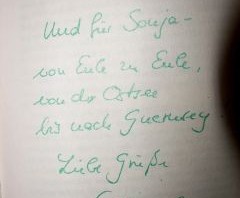 Und für Sonja –
von Eule zu Eule,
von der Ostsee
bis nach Guernsey.
Liebe Grüße